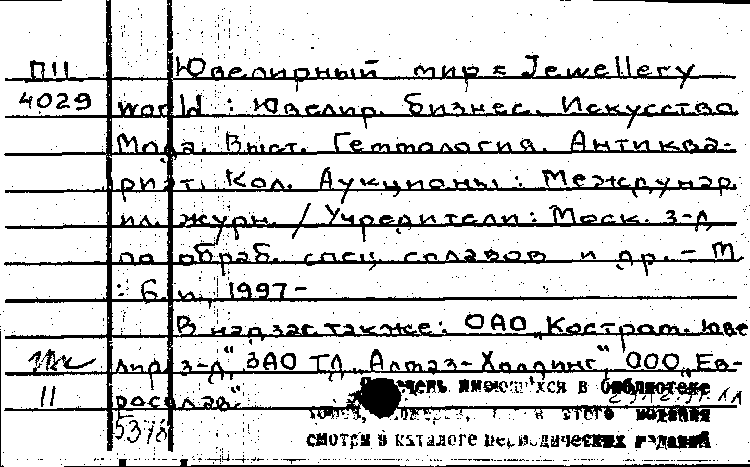 П11 Ювелирный мир = Jewellery
4029 world : Ювелир. бизнес. Искусство.
Мода. Выст. Геммология. Антиква-
риат. Кол. Аукционы : Междунар.
ил. журн. / Учредители : Моск. з-д
по обраб. спец. сплавов и др. - М.
: Б. и., 1997-
В надзаг. также: ОАО „Костром. юве
лир. з-д", ЗАО ТД „Алмаз-Холдинг", ООО „Ев-
11 росплав"
имеющихся в библиотеке
томов, номеров, этого издания
5378 смотри в каталоге периодических изданий